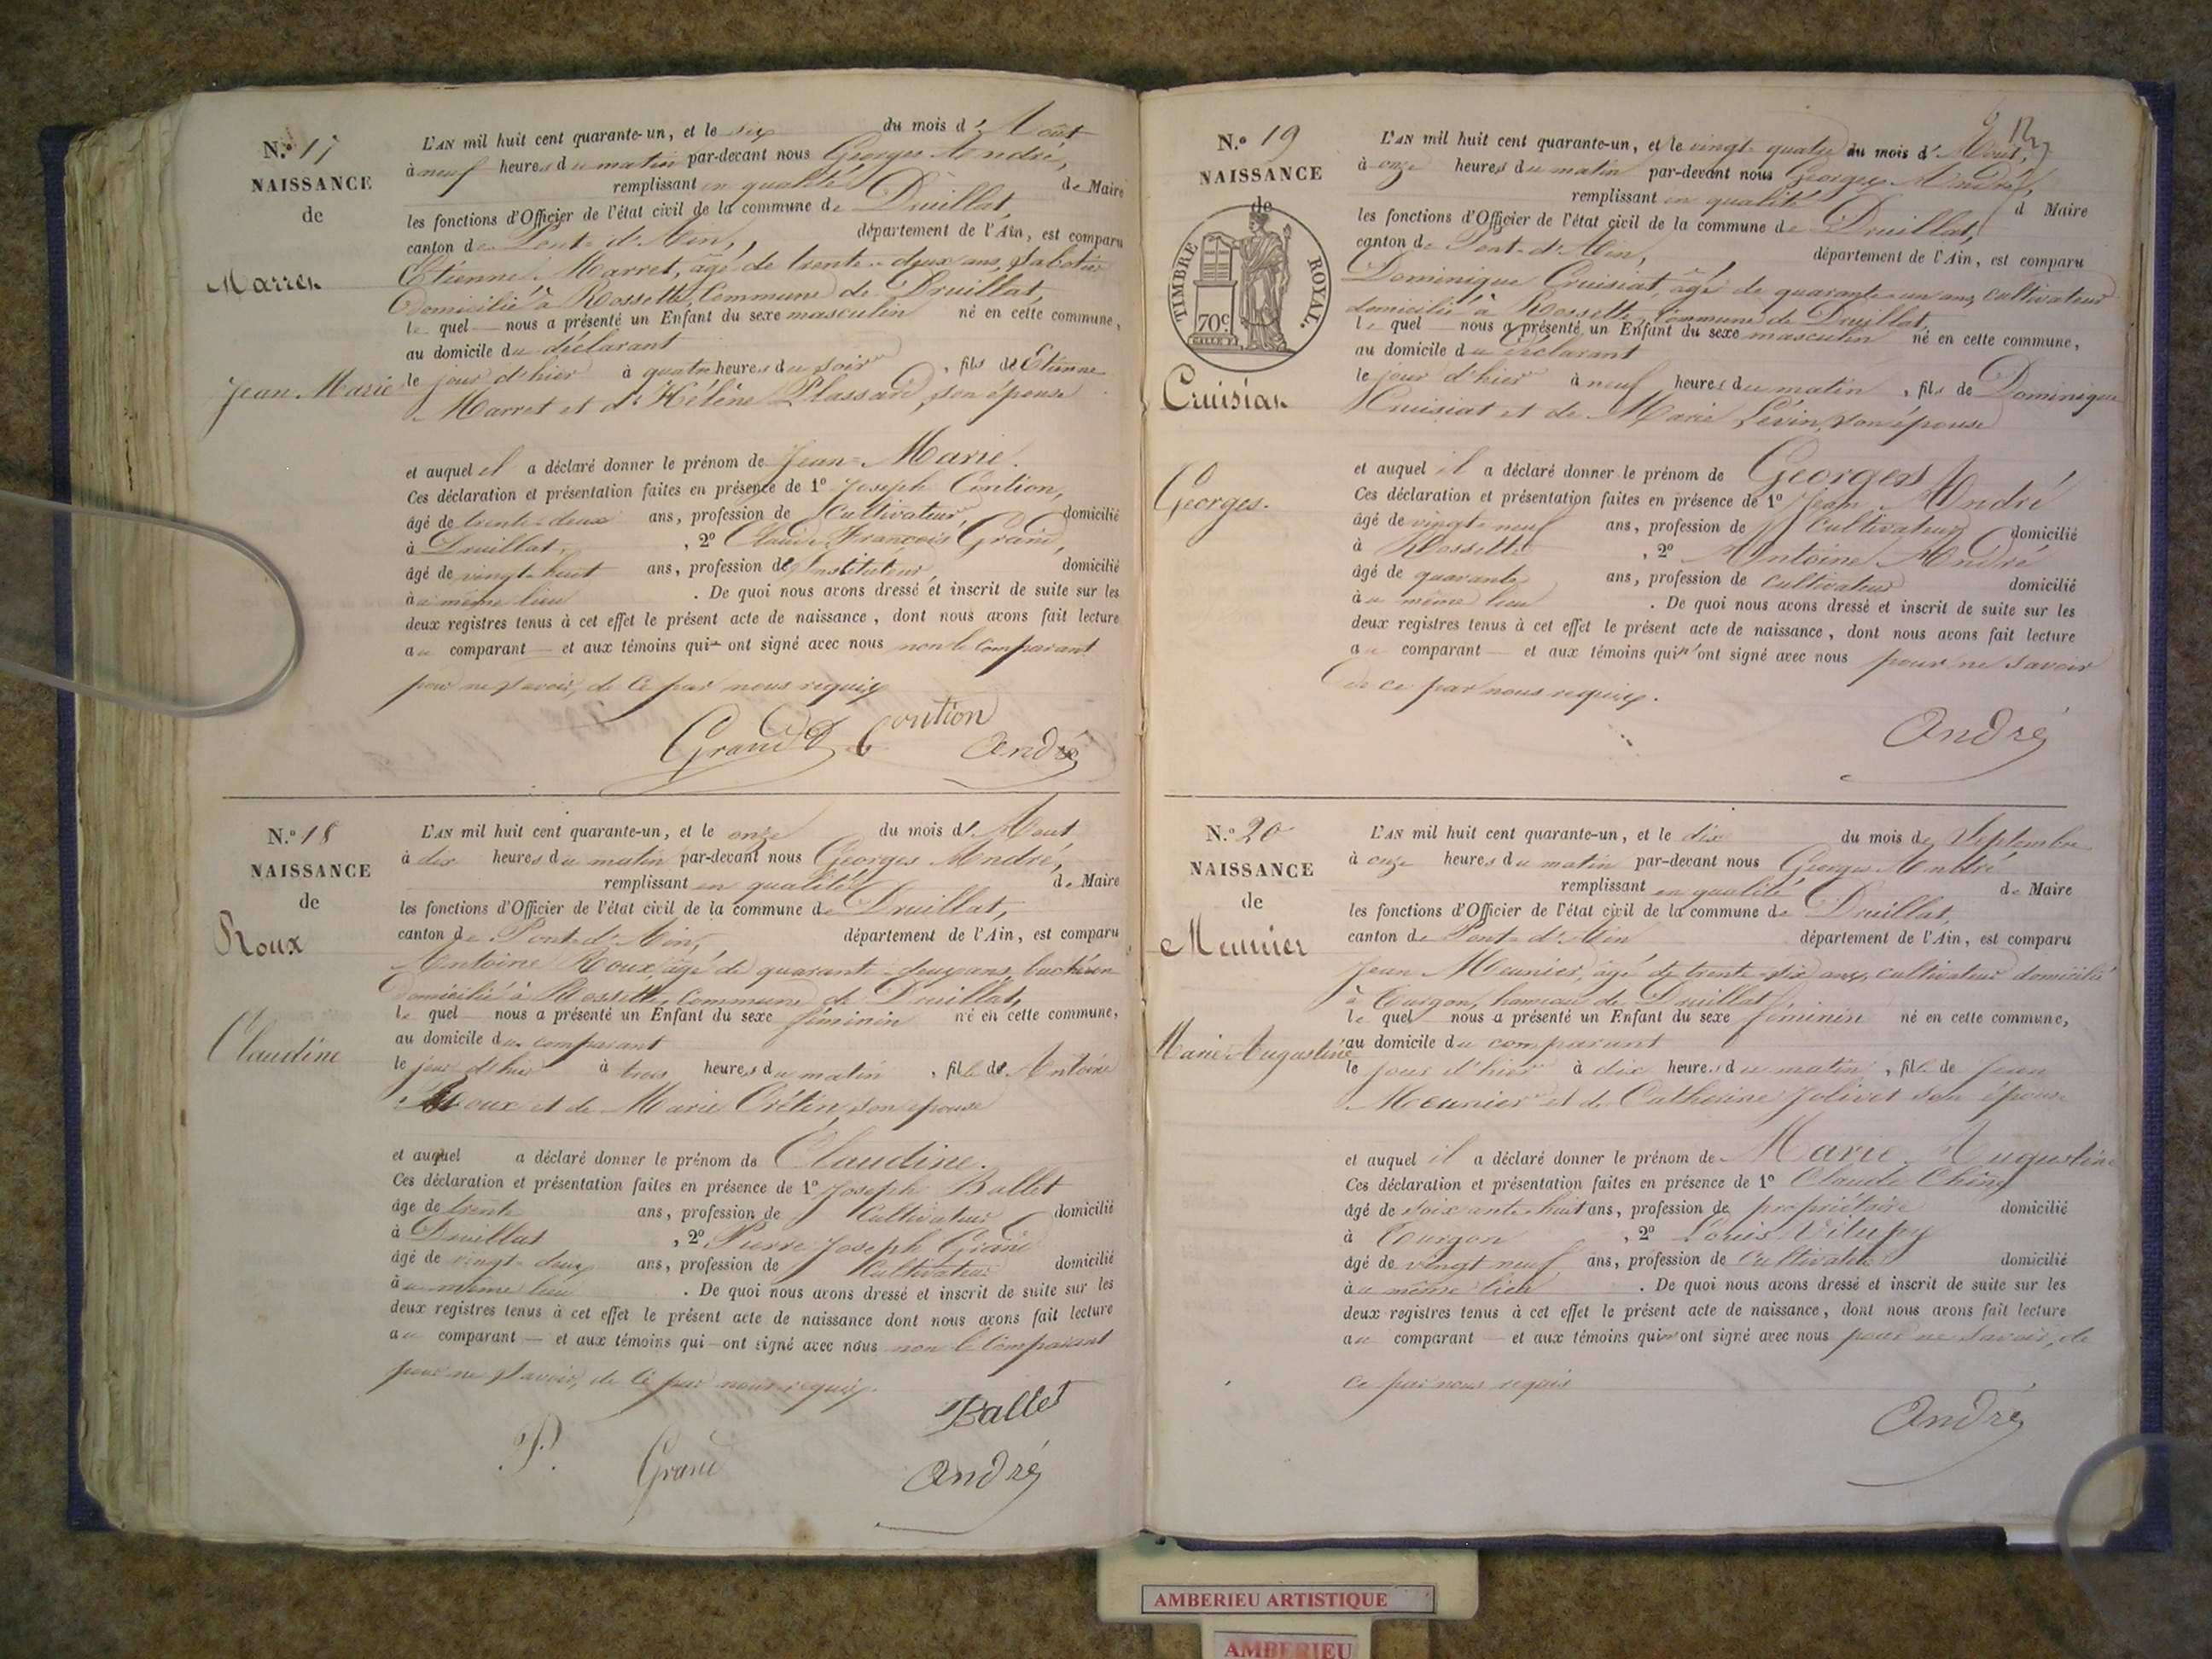 N.º 17
NAISSANCE
de
Marret
Jean Marie
L'AN mil huit cent quarante-un, et le six du mois d'Août
à neuf heures du matin par-devant nous Georges André,
remplissant en qualité de Maire
les fonctions d'Officier de l'état civil de la commune de Druillat,
canton de Pont-d'Ain, département de l'Ain, est comparu
Etienne Marret, âgé de trente-deux ans, sabotier
domicilié à Rossette, Commune de Druillat,
le quel nous a présenté un Enfant du sexe masculin né en cette commune,
au domicile du déclarant
le jour d'hier à quatre heures du soir, fils de Etienne
Marret et d'Hélène Plassard, son épouse
et auquel il a déclaré donner le prénom de Jean-Marie.
Ces déclaration et présentation faites en présence de 1º Joseph Contion,
âgé de trente-deux ans, profession de Cultivateur, domicilié
à Druillat, , 2º Claude François Grand,
âgé de vingt-huit ans, profession de Instituteur, domicilié
à u même lieu . De quoi nous avons dressé et inscrit de suite sur les
deux registres tenus à cet effet le présent acte de naissance, dont nous avons fait lecture
au comparant — et aux témoins qui — ont signé avec nous non le Comparant
pour ne savoir, de ce par nous requis
Grand Contion André
N.º 18
NAISSANCE
de
Roux
Claudine
L'AN mil huit cent quarante-un, et le onze du mois d'Aout
à dix heures du matin par-devant nous Georges André,
remplissant en qualité de Maire
les fonctions d'Officier de l'état civil de la commune de Druillat,
canton de Pont-d'Ain, département de l'Ain, est comparu
Antoine Roux, âgé de quarante-deux ans, bucheron
domicilié à Rossette, Commune de Druillat,
le quel nous a présenté un Enfant du sexe féminin né en cette commune,
au domicile du comparant
le jour d'hier à trois heures du matin, fille de Antoine
Roux et de Marie Crétin, son épouse
et auquel a déclaré donner le prénom de Claudine.
Ces déclaration et présentation faites en présence de 1º Joseph Ballet
âge de trente ans, profession de Cultivateur domicilié
à Druillat , 2º Pierre Joseph Grand
âgé de vingt-deux ans, profession de Cultivateur domicilié
à u même lieu . De quoi nous avons dressé et inscrit de suite sur les
deux registres tenus à cet effet le présent acte de naissance dont nous avons fait lecture
au comparant — et aux témoins qui — ont signé avec nous non le Comparant
pour ne savoir, de ce par nous requis.
Ballet
P. Grand André
N.º 19
NAISSANCE
de
TIMBRE ROYAL.
70c
Cruisiat
Georges.
L'AN mil huit cent quarante-un, et le vingt-quatre du mois d'Août,
à onze heures du matin par-devant nous Georges André,
remplissant en qualité d Maire
les fonctions d'Officier de l'état civil de la commune de Druillat,
canton de Pont-d'Ain, département de l'Ain, est comparu
Dominique Cruisiat, âgé de quarante-un ans, cultivateur
domicilié à Rossette, Commune de Druillat,
le quel nous a présenté un Enfant du sexe masculin né en cette commune,
au domicile du déclarant
le jour d'hier à neuf heures du matin, fils de Dominique
Cruisiat et de Marie Lévin, son épouse
et auquel il a déclaré donner le prénom de Georges
Ces déclaration et présentation faites en présence de 1º Jean André
âgé de vingt-neuf ans, profession de Cultivateur domicilié
à Rossette , 2º Antoine André
âgé de quarante ans, profession de Cultivateur domicilié
à u même lieu . De quoi nous avons dressé et inscrit de suite sur les
deux registres tenus à cet effet le présent acte de naissance, dont nous avons fait lecture
au comparant — et aux témoins qui n'ont signé avec nous pour ne savoir
de ce par nous requis.
André
N.º 20
NAISSANCE
de
Meunier
Marie Augustine
L'AN mil huit cent quarante-un, et le dix du mois de Septembre
à onze heures du matin par-devant nous Georges André
remplissant en qualité de Maire
les fonctions d'Officier de l'état civil de la commune de Druillat,
canton de Pont-d'Ain département de l'Ain, est comparu
Jean Meunier, âgé de trente-six ans, cultivateur domicilié
à Turgon, hameau de Druillat,
le quel nous a présenté un Enfant du sexe féminin né en cette commune,
au domicile du comparant
le jour d'hier à dix heures du matin, fille de Jean
Meunier et de Catherine Jolivet son épouse
et auquel il a déclaré donner le prénom de Marie Augustine
Ces déclaration et présentation faites en présence de 1º Claude Chiny
âgé de soixante-huit ans, profession de propriétaire domicilié
à Turgon , 2º Louis Vilupy
âgé de vingt neuf ans, profession de Cultivateur domicilié
à u même lieu . De quoi nous avons dressé et inscrit de suite sur les
deux registres tenus à cet effet le présent acte de naissance, dont nous avons fait lecture
au comparant — et aux témoins qui n'ont signé avec nous pour ne savoir, de
ce par nous requis
André
AMBERIEU ARTISTIQUE
AMBERIEU